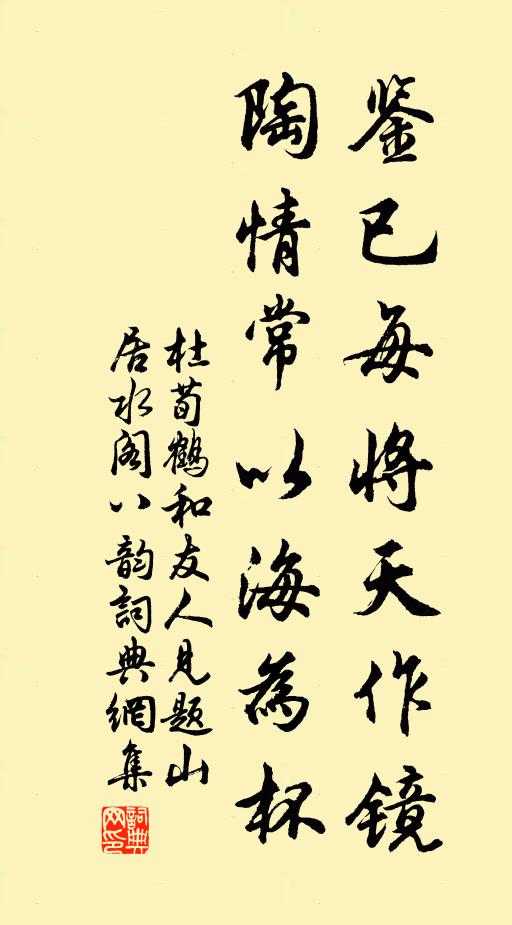 鉴已每将天作镜
陶情常以海為杯
杜荀鶴和友人見題山
居水阁八韵詞典網集
詞典
网印